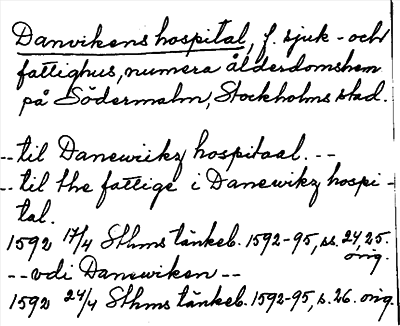 Danvikens hospital, f. sjuk- och
fattighus, numera ålderdomshem
på Södermalm, Stockholms stad.
--til Danewiikz hospitaal.--
--til the fattige i Danewikz hospi-
tal.
1592 17/4 Sthms tänkeb. 1592-95, ss. 24, 25.
orig.
--vdi Danewiken--
1592 24/4 Sthms tänkeb. 1592-95, s. 26. orig.